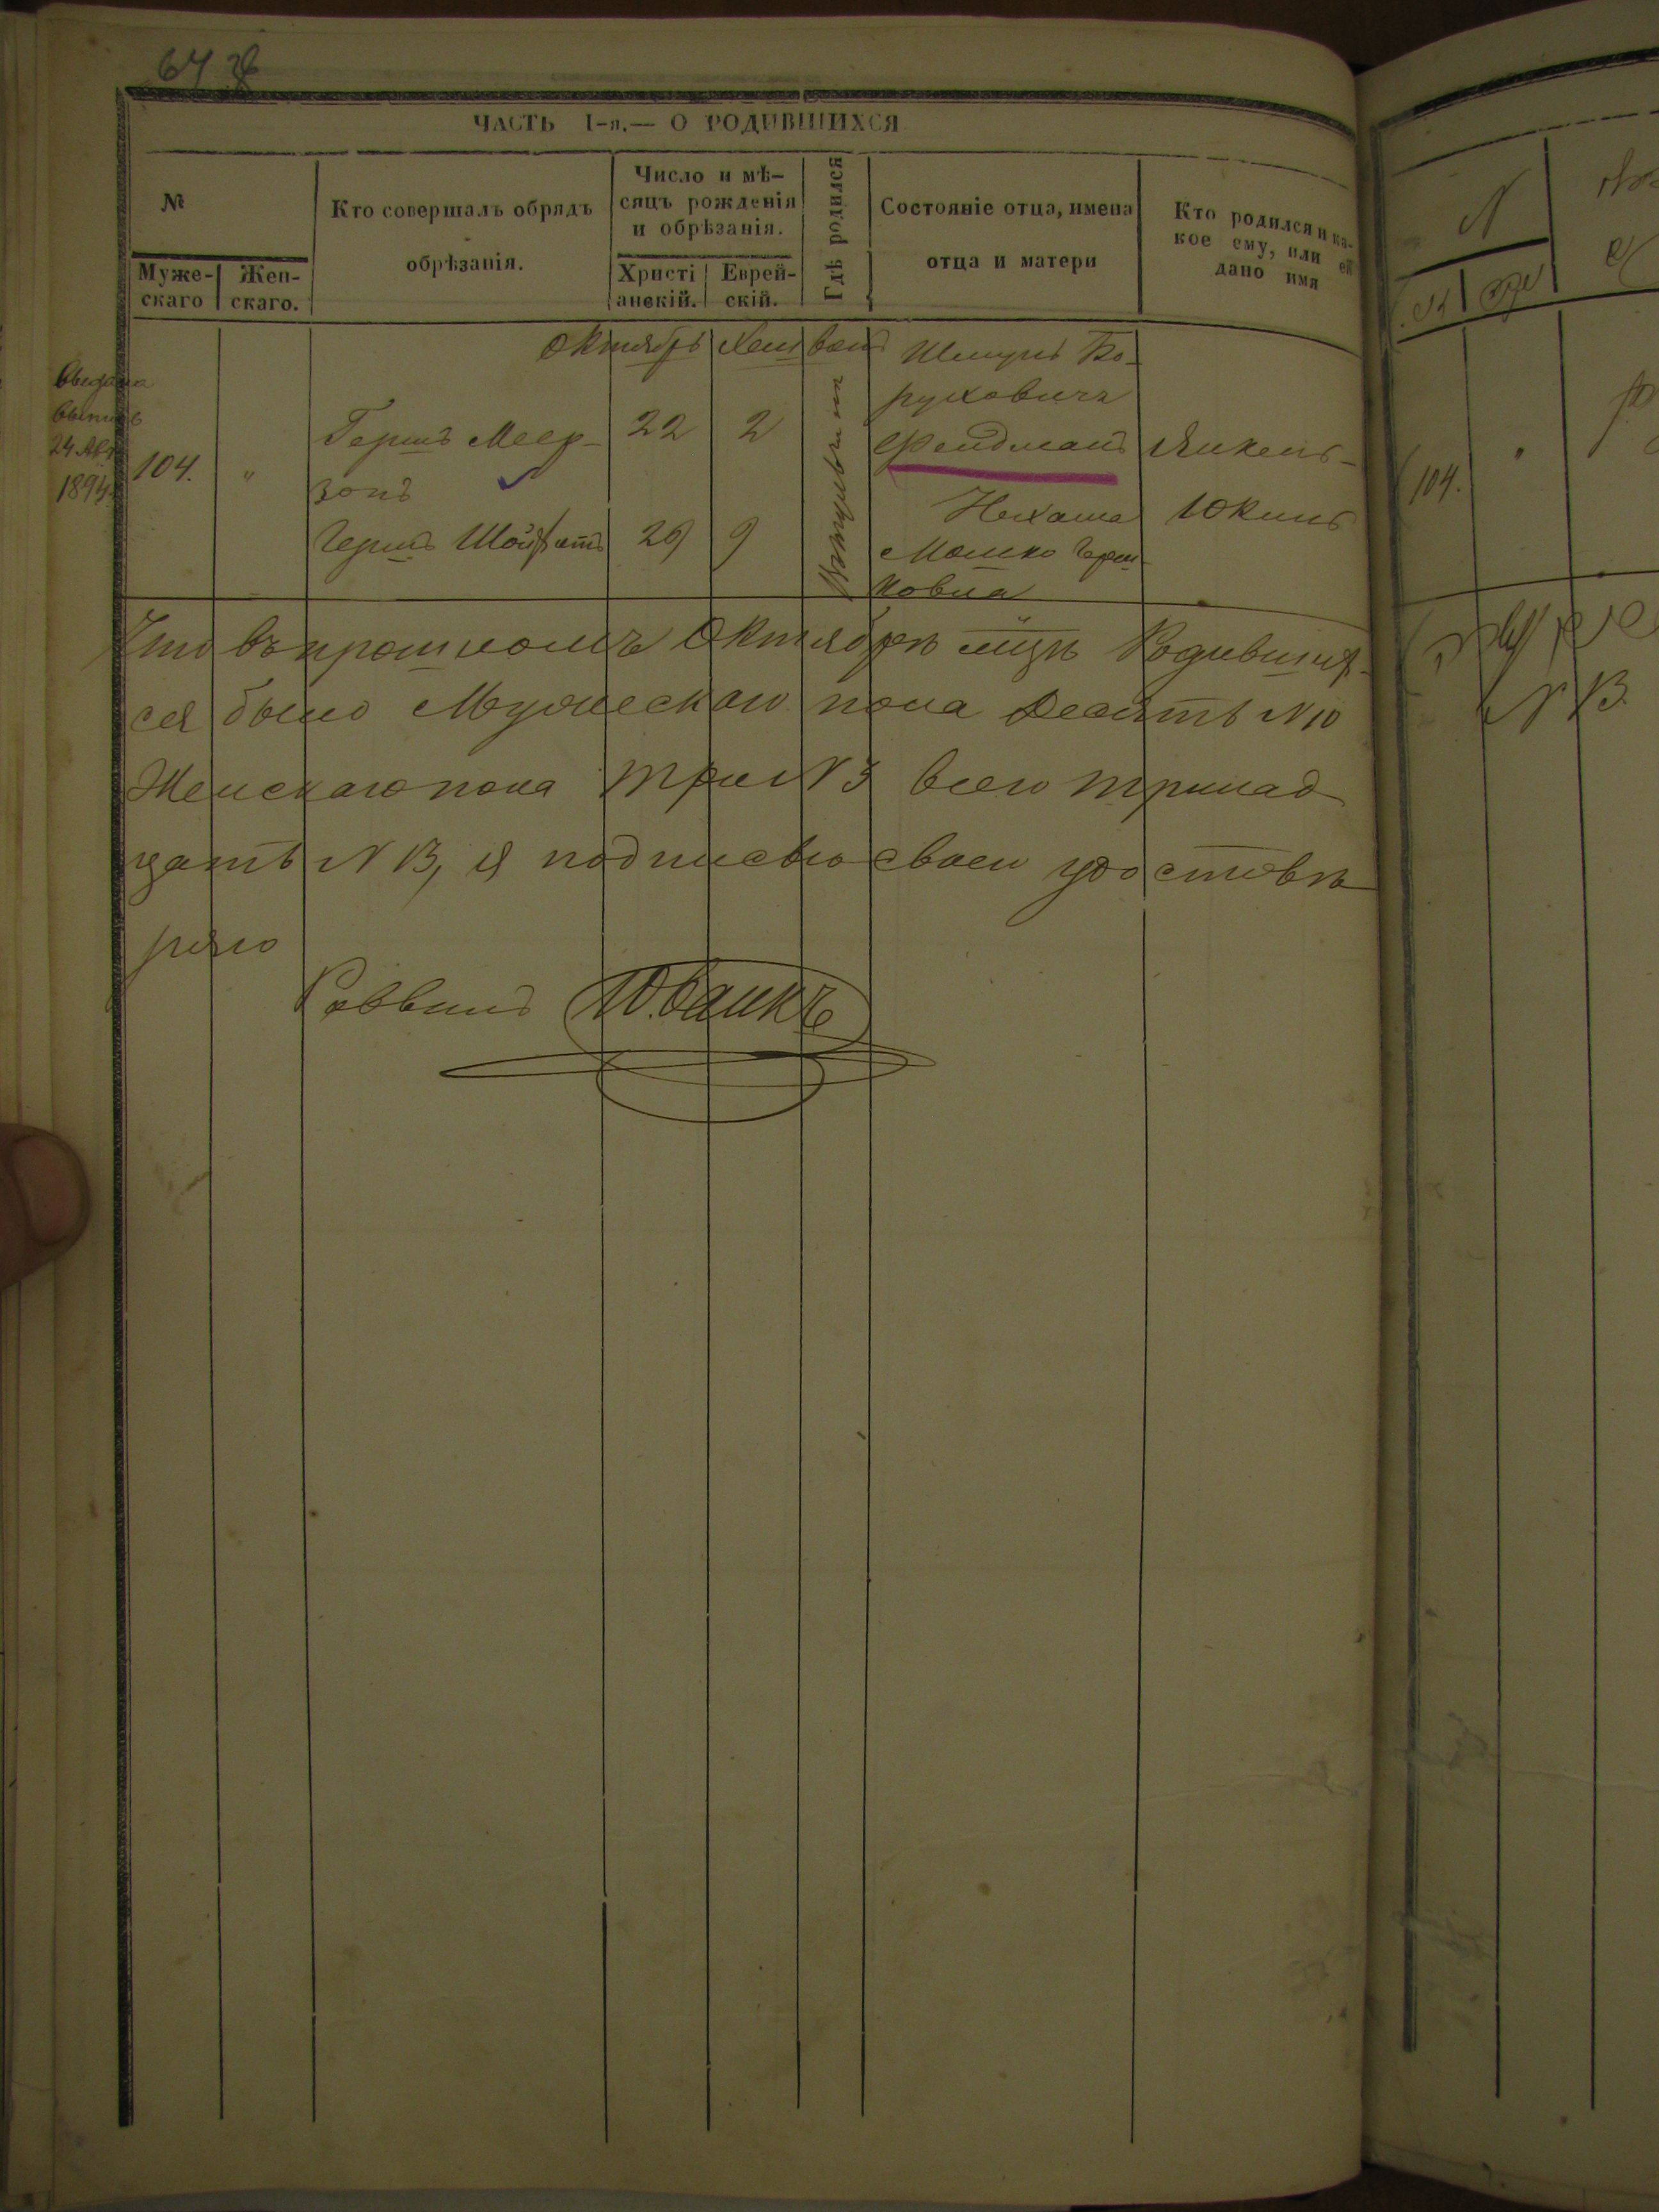 64
ЧАСТЬ I-я.— О РОДИВШИХСЯ
№
Муже-
скаго
Жен-
скаго.
Кто совершалъ обрядъ
обрѣзанія.
Число и мѣ-
сяцъ рожденія
и обрѣзанія.
Христі
анскій.
Еврей-
скій.
Гдѣ родился
Состояніе отца, имена
отца и матери
Кто родился и ка-
кое ему, или ей
дано имя
Октябрь
выдана
24 Авг
1894
104. "
Гершъ Меер-
зонъ
Гершъ
22 2
29 9
Шмуль Бо-
руховичъ
Фельдманъ
Нехама
Мошко Герш-
ковна
Янкель-
Юкиль
Что въ прошломъ Октябрѣ мцѣ Родивших-
ся было Мужескаго пола Десять №10
Женскаго пола три №3 всего тринад
цать №13, я подписью своею удостовѣ
ряю
Раввинъ
104.
№13.